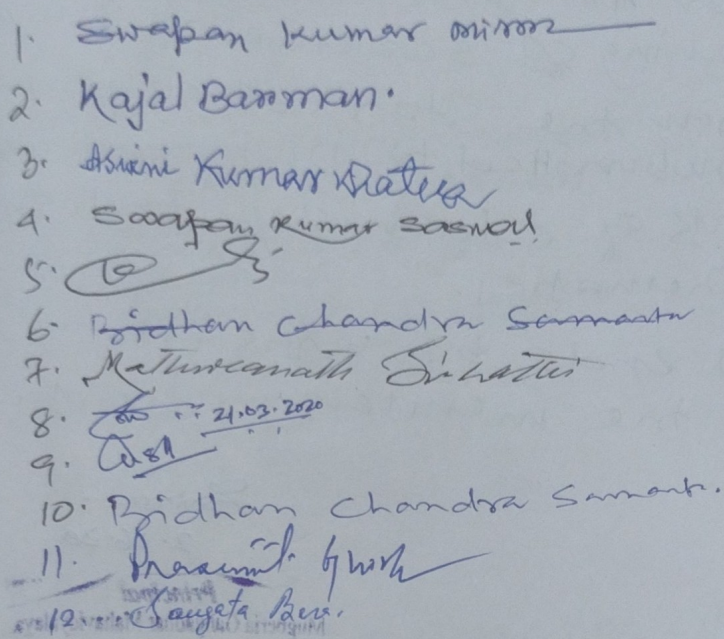 1. Swapan Kumar misra
2. Kajal Barman.
3. Aswini Kumar Khatua
4. Swapan Kumar Sasmal
5.
6. Bidhan Chandra Samanta
7. Mathuranath
8. 21.03.2020
9.
10. Bidhan Chandra Samanta.
11. Prasanta Ghosh
12. Sangata Bera.